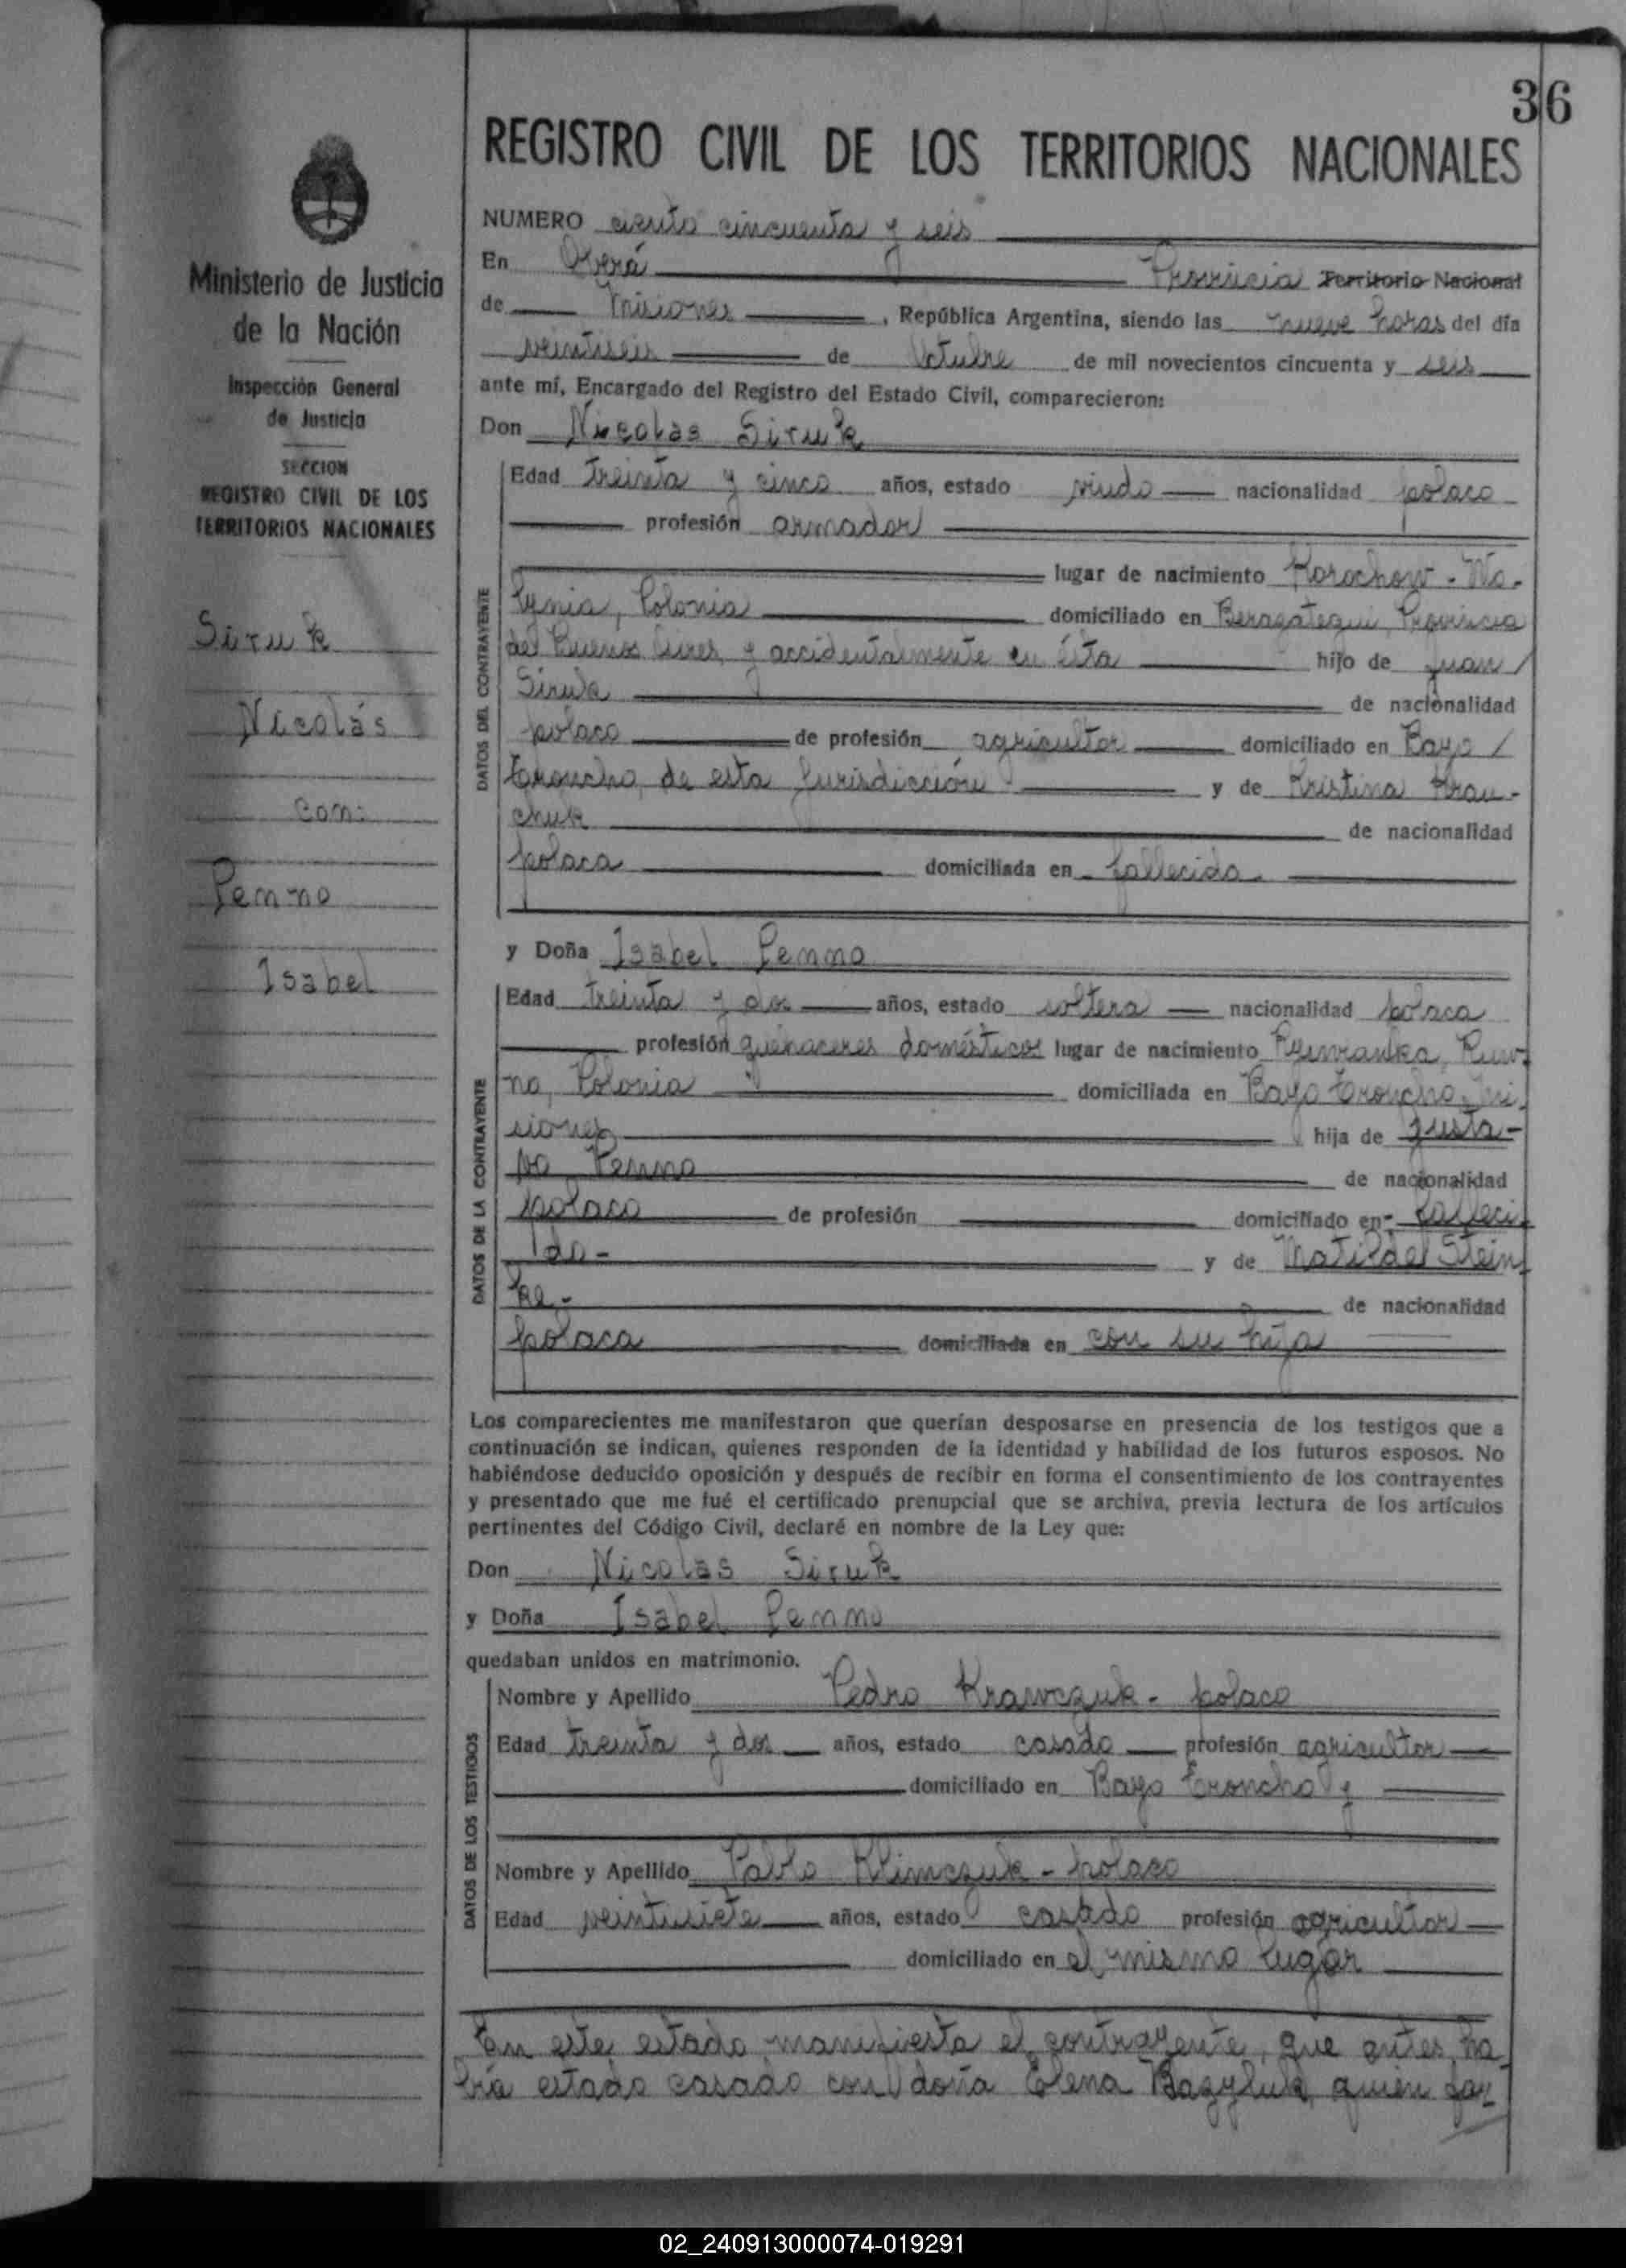 36
REGISTRO CIVIL DE LOS TERRITORIOS NACIONALES
Ministerio de Justicia
de la Nación
Inspección General
de Justicia
SECCION
REGISTRO CIVIL DE LOS
TERRITORIOS NACIONALES
Siruk
Nicolás
con:
Penno
Isabel
NUMERO ciento cincuenta y seis
En Oberá Provincia Territorio Nacional
de Misiones, República Argentina, siendo las nueve horas del día
veintiseis de Octubre de mil novecientos cincuenta y seis
ante mí, Encargado del Registro del Estado Civil, comparecieron:
Don Nicolas Siruk
DATOS DEL CONTRAYENTE
Edad treinta y cinco años, estado viudo nacionalidad polaco
profesión armador
lugar de nacimiento Horochow-Wo-
lynia, Polonia domiciliado en Berazategui, Provincia
de Buenos Aires, y accidentalmente en ésta hijo de Juan
Siruk de nacionalidad
polaco de profesión agricultor domiciliado en Bayo
Troncho, de esta Jurisdicción y de Kristina Krau-
chuk de nacionalidad
polaca domiciliada en fallecida.
y Doña Isabel Penno
DATOS DE LA CONTRAYENTE
Edad treinta y dos años, estado soltera nacionalidad polaca
profesión quehaceres domésticos lugar de nacimiento
no, Polonia domiciliada en Bayo Troncho, Mi-
siones hija de Gusta-
vo Penno de nacionalidad
polaco de profesión domiciliado en falleci-
do- y de Matilde Stein
ke- de nacionalidad
polaca domiciliada en con su hija
Los comparecientes me manifestaron que querían desposarse en presencia de los testigos que a
continuación se indican, quienes responden de la identidad y habilidad de los futuros esposos. No
habiéndose deducido oposición y después de recibir en forma el consentimiento de los contrayentes
y presentado que me fué el certificado prenupcial que se archiva, previa lectura de los artículos
pertinentes del Código Civil, declaré en nombre de la Ley que:
Don Nicolas Siruk
y Doña Isabel Penno
quedaban unidos en matrimonio.
DATOS DE LOS TESTIGOS
Nombre y Apellido Pedro Krawczuk - polaco
Edad treinta y dos años, estado casado profesión agricultor
domiciliado en Bayo Troncho y
Nombre y Apellido Pablo Klimczuk - polaco
Edad veintisiete años, estado casado profesión agricultor
domiciliado en el mismo lugar
En este estado manifiesta el contrayente, que antes ha-
bía estado casado con doña Elena Bazyluk, quién
02_240913000074-019291